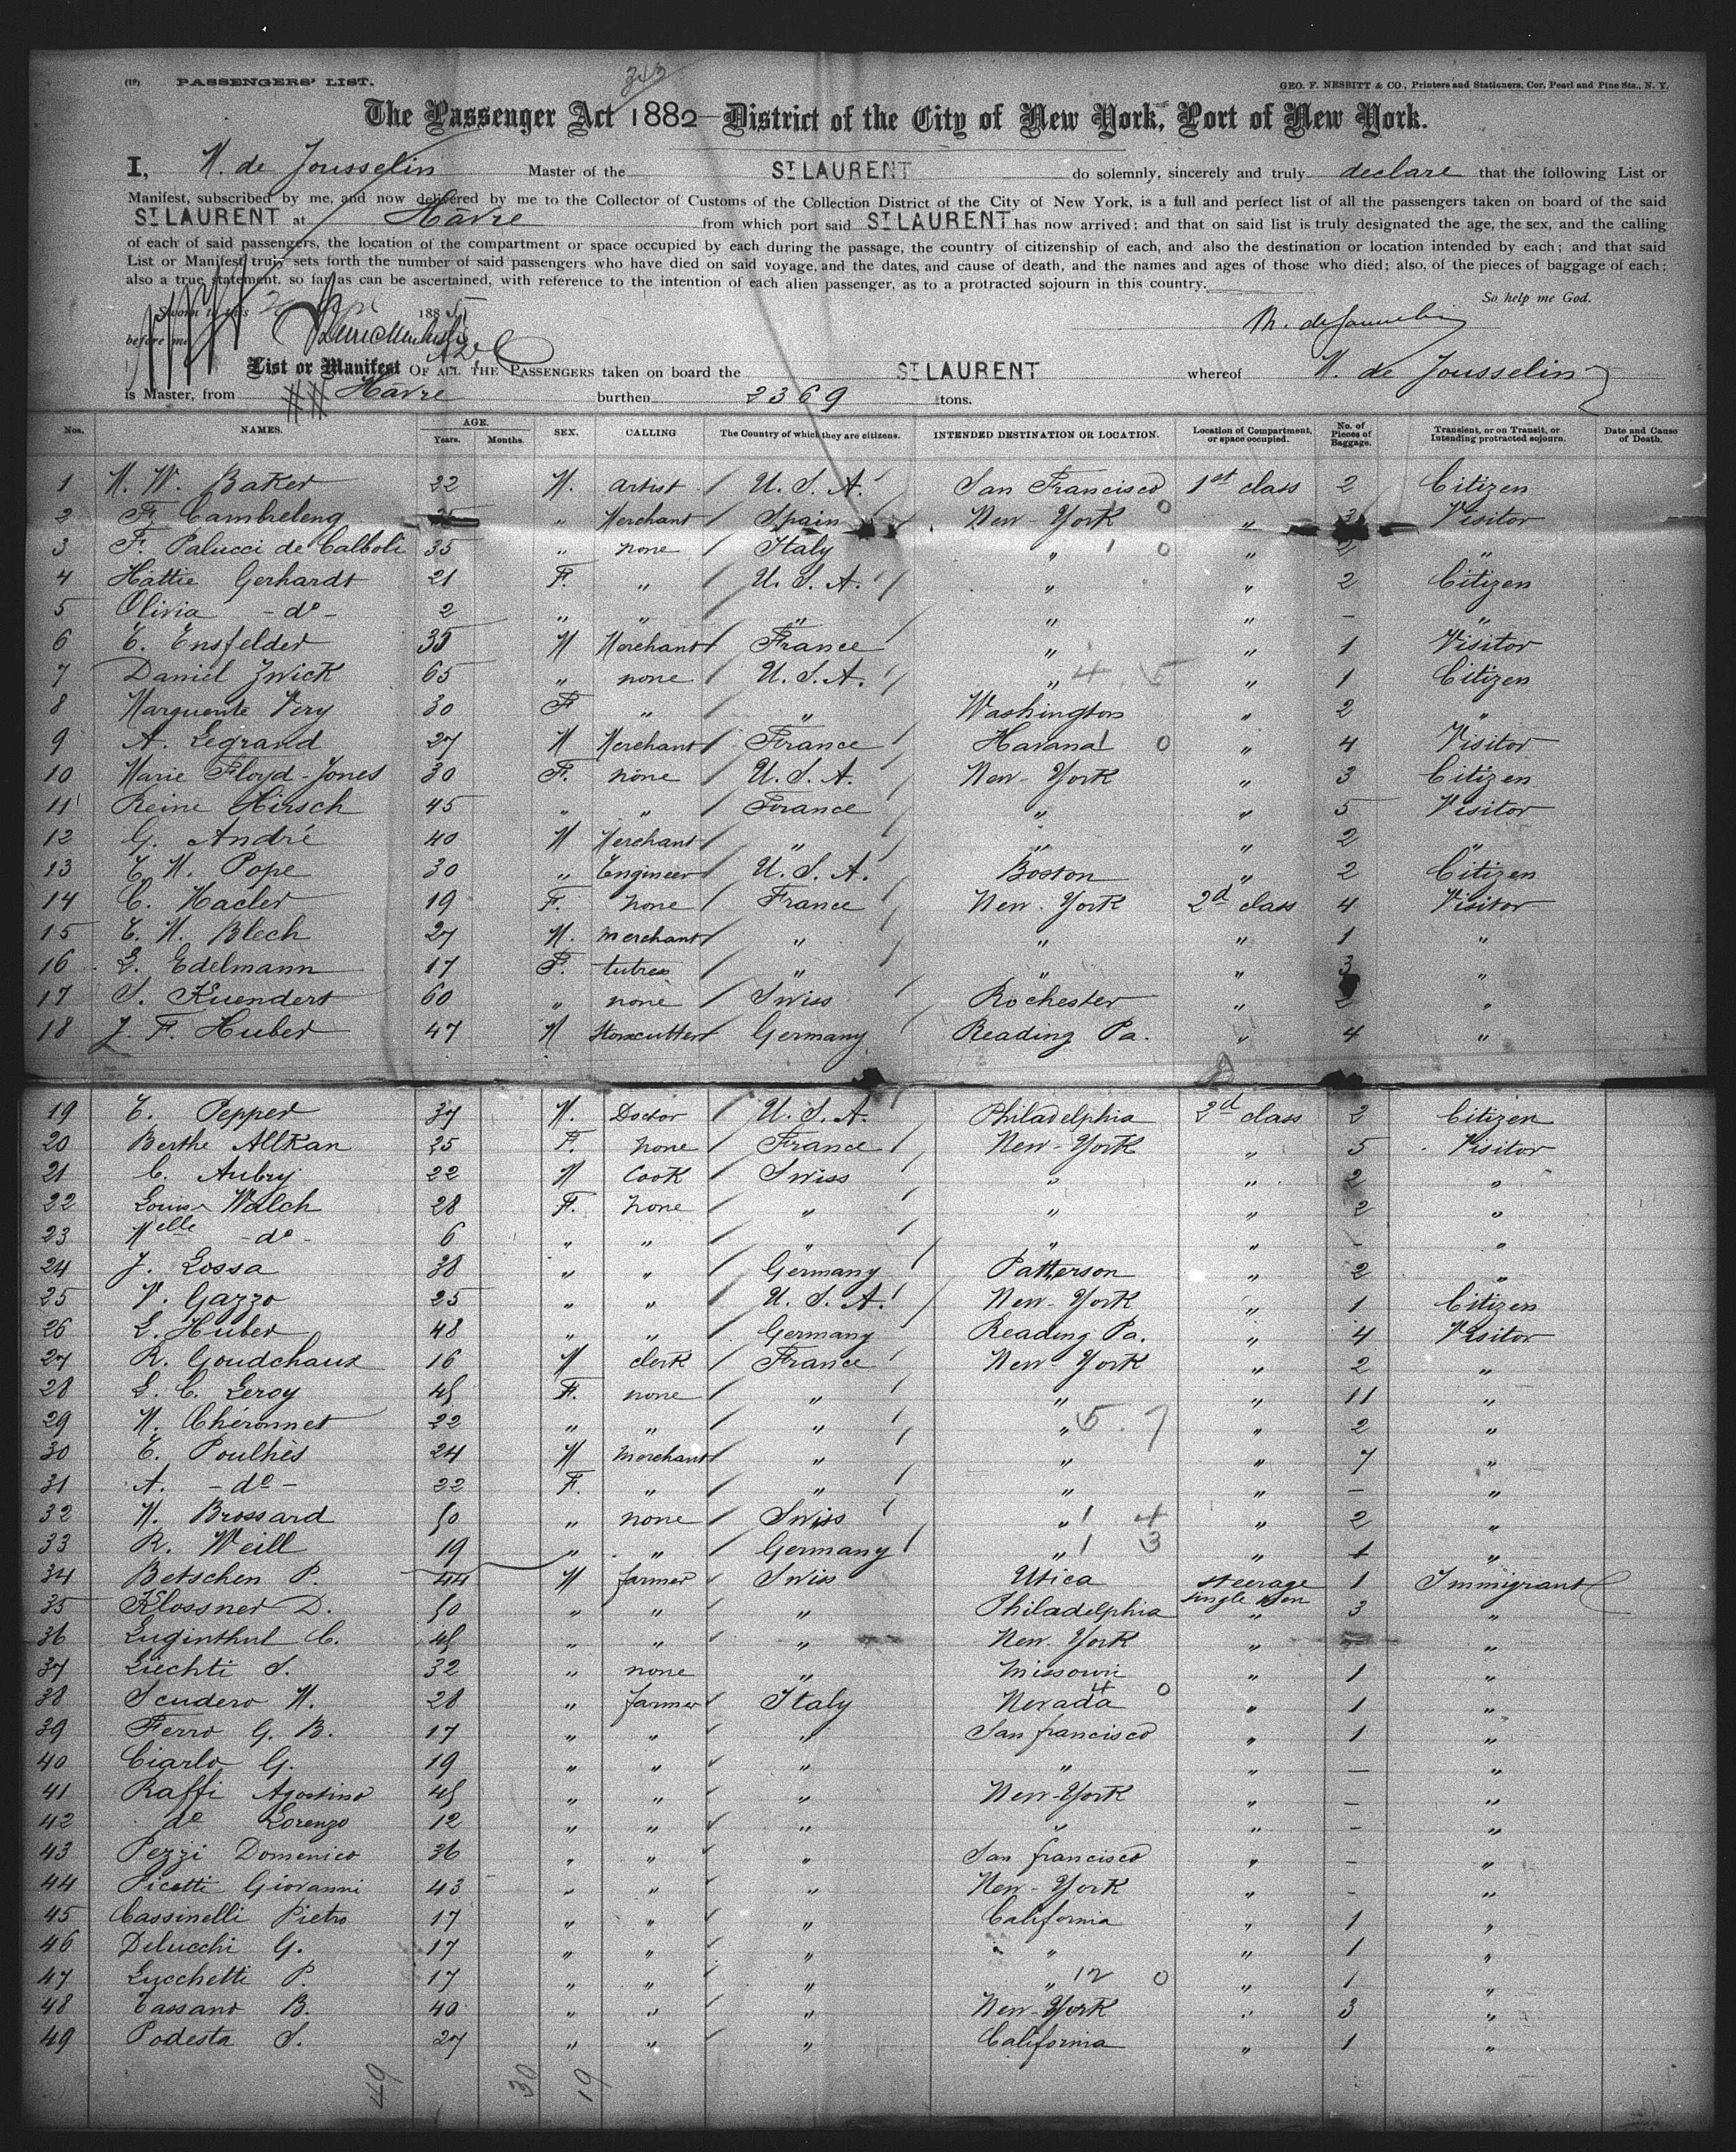 (18) PASSENGERS' LIST.
GEO. F. NESBITT & CO., Printers and Stationers, Cor. Pearl and Pine Sts., N. Y.
The Passenger Act 1882 District of the City of New York, Port of New York.
I, M. de Jousselin Master of the ST LAURENT do solemnly, sincerely and truly declare that the following List or
Manifest, subscribed by me, and now delivered by me to the Collector of Customs of the Collection District of the City of New York, is a full and perfect list of all the passengers taken on board of the said
ST LAURENT at Hâvre from which port said ST LAURENT has now arrived; and that on said list is truly designated the age, the sex, and the calling
of each of said passengers, the location of the compartment or space occupied by each during the passage, the country of citizenship of each, and also the destination or location intended by each; and that said
List or Manifest truly sets forth the number of said passengers who have died on said voyage, and the dates, and cause of death, and the names and ages of those who died; also, of the pieces of baggage of each;
also a true statement, so far as can be ascertained, with reference to the intention of each alien passenger, as to a protracted sojourn in this country.
So help me God.
Sworn to this 1885
before me
M. de Jousselin
List or Manifest OF ALL THE PASSENGERS taken on board the ST LAURENT whereof M. de Jousselin
is Master, from Hâvre burthen 2369 tons.
Nos. NAMES. AGE. Years. Months. SEX. CALLING The Country of which they are citizens. INTENDED DESTINATION OR LOCATION. Location of Compartment, or space occupied. No. of Pieces of Baggage. Transient, or on Transit, or Intending protracted sojourn. Date and Cause of Death.
1 M. W. Baker 22 M. artist U. S. A. San Francisco 1st class 2 Citizen
2 F. Cambreleng " Merchant Spain New-York " 3 Visitor
3 F. Palucci de Calboli 35 " none Italy " " 2 "
4 Hattie Gerhardt 21 F. " U. S. A. " " 2 Citizen
5 Olivia - do - 2 " " " " " - "
6 E. Ensfelder 35 M Merchant France " " 1 Visitor
7 Daniel Zwick 65 " none U. S. A. " " 1 Citizen
8 Marguerite Very 30 F " " Washington " 2 "
9 A. Legrand 27 M Merchant France Havana " 4 Visitor
10 Marie Floyd-Jones 30 F. none U. S. A. New-York " 3 Citizen
11 Reine Hirsch 45 " " France " " 5 Visitor
12 G. André 40 M Merchant " " " 2 "
13 E. M. Pope 30 " Engineer U. S. A. Boston " 2 Citizen
14 C. Hacler 19 F. none France New-York 2d class 4 Visitor
15 E. M. Blech 27 M. merchant " " " 1 "
16 L. Edelmann 17 F. tutress " " " 3 "
17 S. Kuenders 60 " none Swiss Rochester " 2 "
18 J. F. Huber 47 M Stonecutter Germany Reading Pa. " 4 "
19 E. Pepper 37 M. Doctor U. S. A. Philadelphia 2d class 2 Citizen
20 Berthe Allkan 25 F. none France New-York " 5 Visitor
21 C. Aubry 22 M Cook Swiss " " 2 "
22 Louise Walch 28 F. none " " " 2 "
23 Melle - do - 6 " " " " " - "
24 J. Lossa 38 " " Germany Patterson " 2 "
25 V. Gazzo 25 " " U. S. A. New-York " 1 Citizen
26 L. Huber 48 " " Germany Reading Pa. " 4 Visitor
27 R. Goudchaux 16 M clerk France New York " 2 "
28 L. C. Leroy 45 F. none " " " 11 "
29 M. Chéronnet 22 " " " " " 2 "
30 E. Poulhès 24 M merchant " " " 7 "
31 A. - do - 22 F. " " " " - "
32 M. Brossard 50 " none Swiss " " 2 "
33 R. Weill 19 " " Germany " " 1 "
34 Betschen P. 44 M farmer Swiss Utica steerage single men 1 Immigrant
35 Klossner D. 50 " " " Philadelphia " 3 "
36 Luginthul C. 45 " " " New York " - "
37 Liechti S. 32 " none " Missouri " 1 "
38 Scudero M. 28 " farmer Italy Nevada " 1 "
39 Ferro G. B. 17 " " " San francisco " 1 "
40 Ciarlo G. 19 " " " " " - "
41 Raffi Agostino 45 " " " New-York " - "
42 do Lorenzo 12 " " " " " - "
43 Pezzi Domenico 36 " " " San francisco " - "
44 Picetti Giovanni 43 " " " New-York " - "
45 Cassinelli Pietro 17 " " " California " 1 "
46 Delucchi G. 17 " " " " " 1 "
47 Lucchetti P. 17 " " " " " 1 "
48 Tassano B. 40 " " " New-York " 3 "
49 Podesta S. 27 " " " California " 1 "
49 30 19